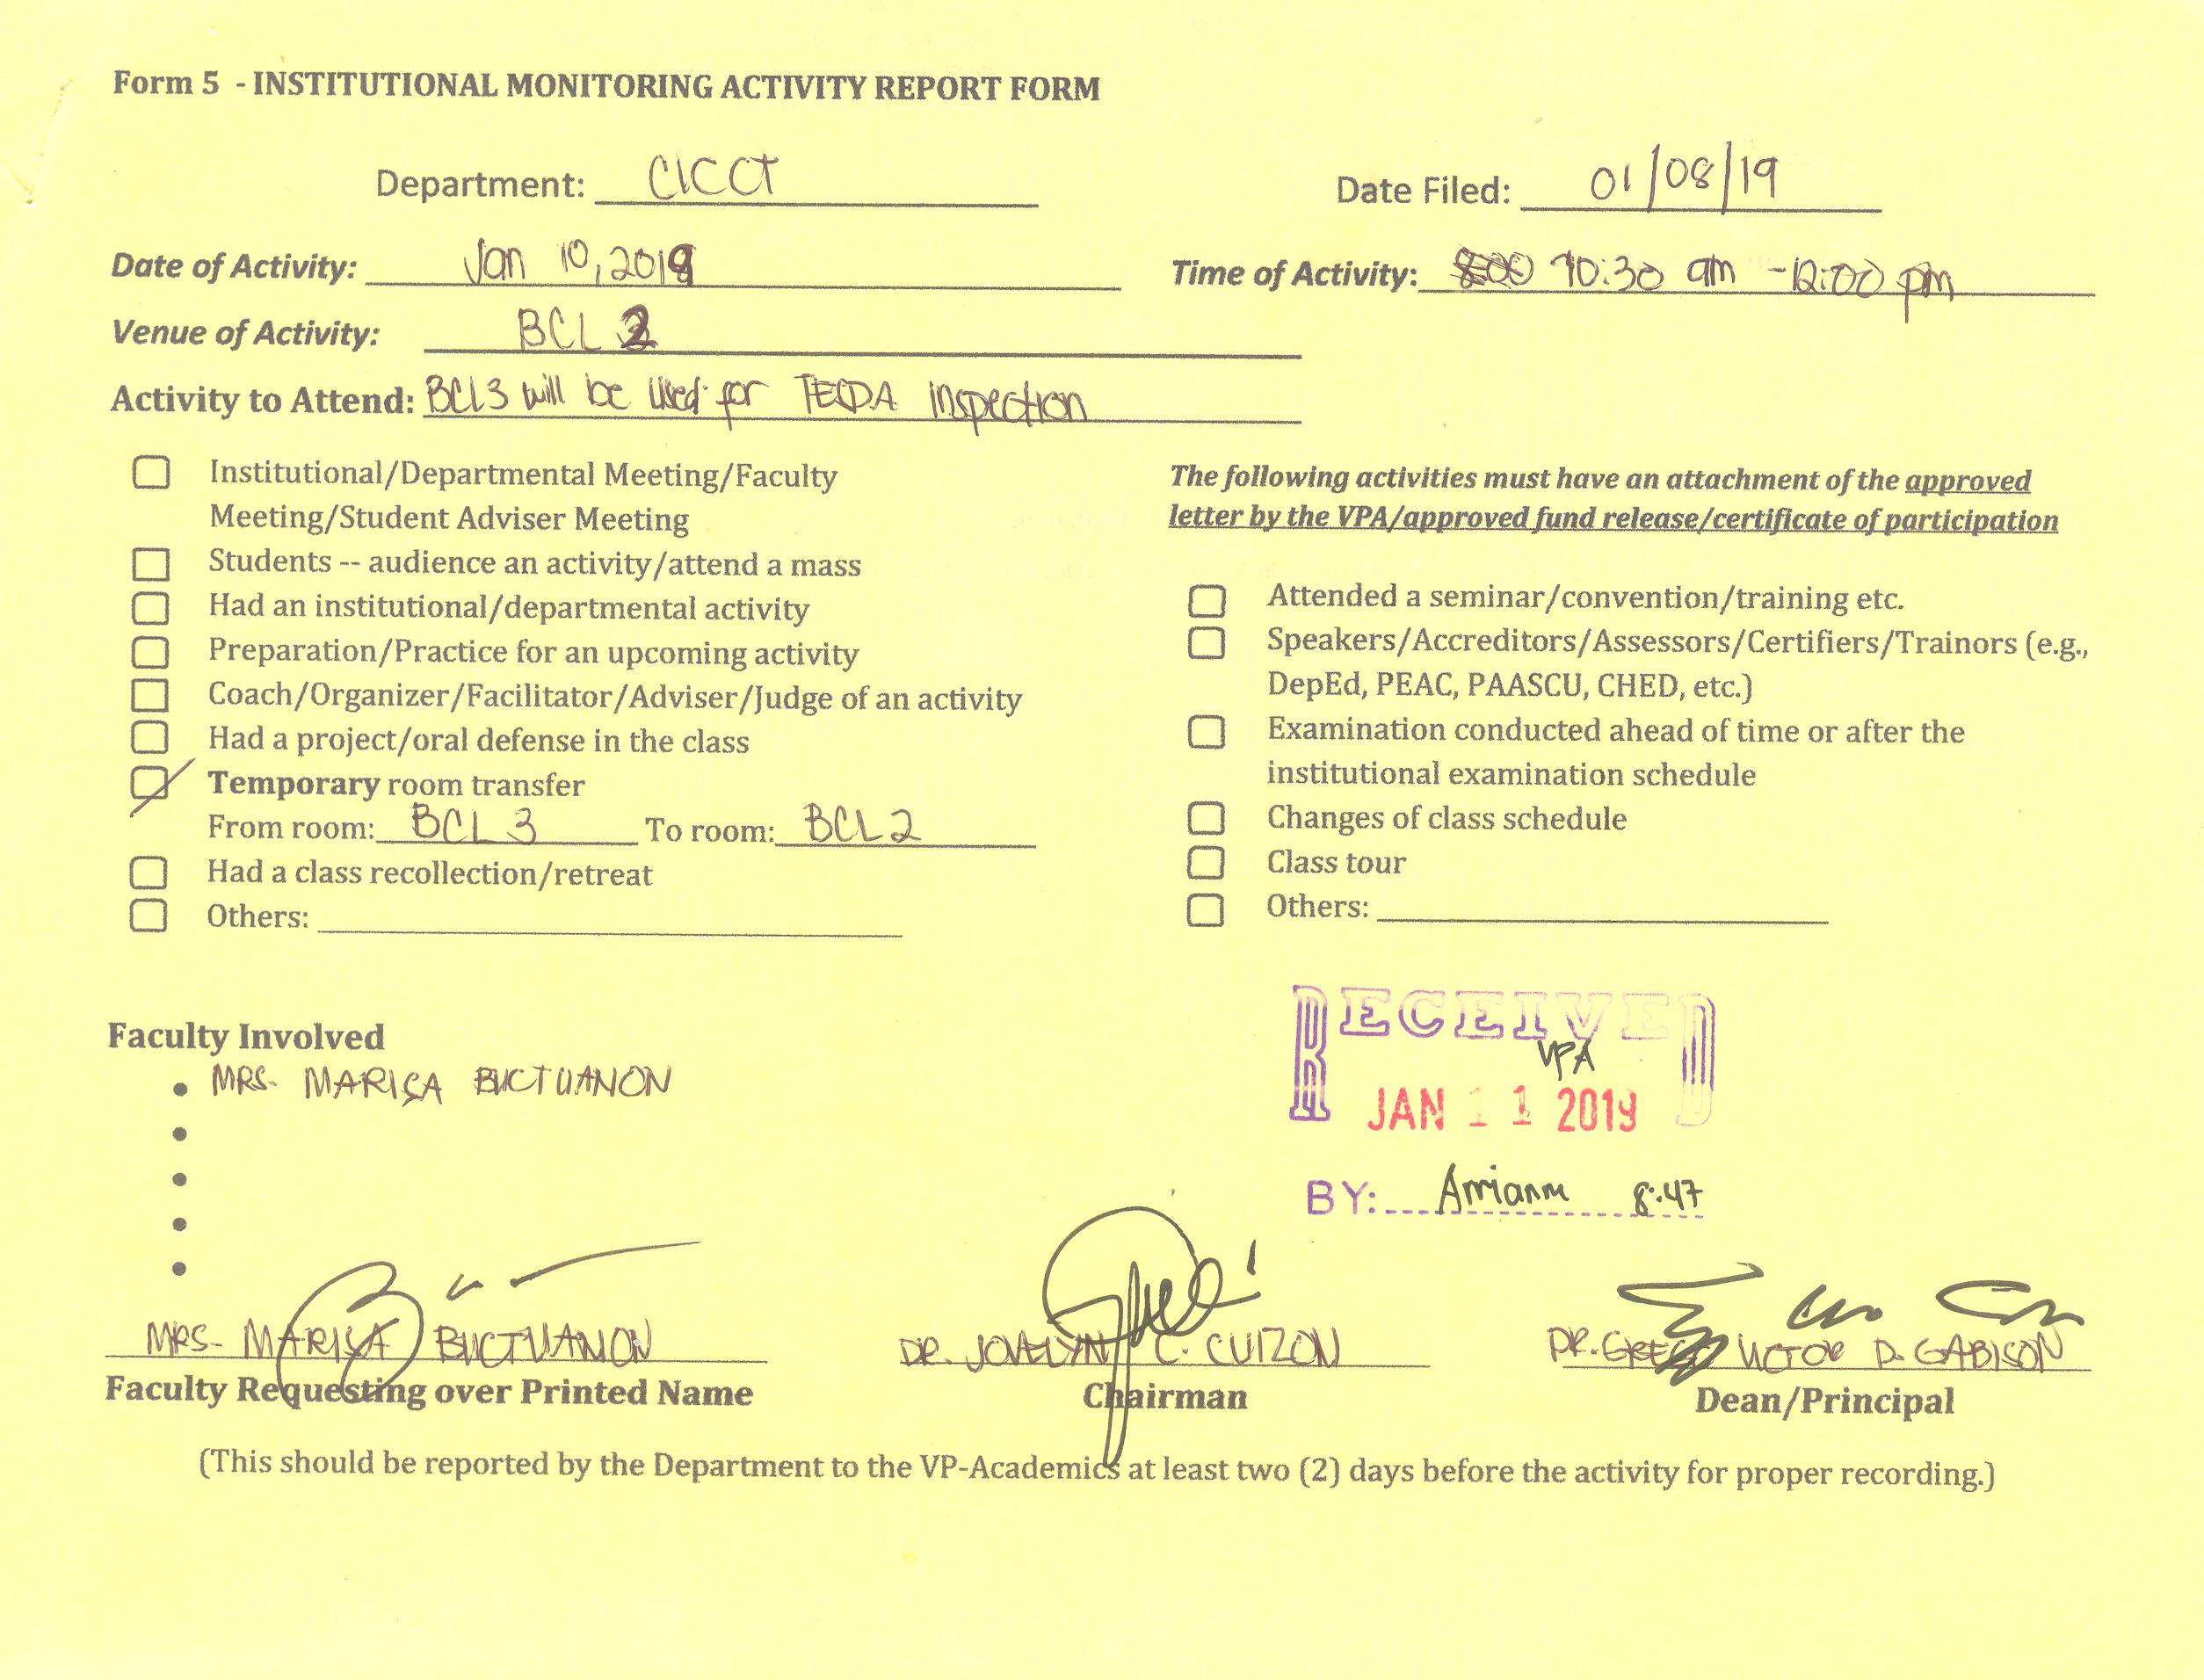 Form 5 - INSTITUTIONAL MONITORING ACTIVITY REPORT FORM
Department: CICCT
Date Filed: 01/08/19
Date of Activity: Jan 10, 2019
Time of Activity: 10:30 am - 12:00 pm
Venue of Activity: BCL 2
Activity to Attend: BCL3 will be used for TESDA Inspection
Institutional/Departmental Meeting/Faculty
Meeting/Student Adviser Meeting
Students -- audience an activity/attend a mass
Had an institutional/departmental activity
Preparation/Practice for an upcoming activity
Coach/Organizer/Facilitator/Adviser/Judge of an activity
Had a project/oral defense in the class
Temporary room transfer
From room: BCL 3 To room: BCL 2
Had a class recollection/retreat
Others:
The following activities must have an attachment of the approved
letter by the VPA/approved fund release/certificate of participation
Attended a seminar/convention/training etc.
Speakers/Accreditors/Assessors/Certifiers/Trainors (e.g.,
DepEd, PEAC, PAASCU, CHED, etc.)
Examination conducted ahead of time or after the
institutional examination schedule
Changes of class schedule
Class tour
Others:
Faculty Involved
• MRS. MARISA BUCTUANON
RECEIVED
VPA
JAN 11 2019
BY: 8:47
MRS. MARISA BUCTUANON
Faculty Requesting over Printed Name
DR. JOVELYN C. CUIZON
Chairman
DR. VICTOR D. GABISON
Dean/Principal
(This should be reported by the Department to the VP-Academics at least two (2) days before the activity for proper recording.)